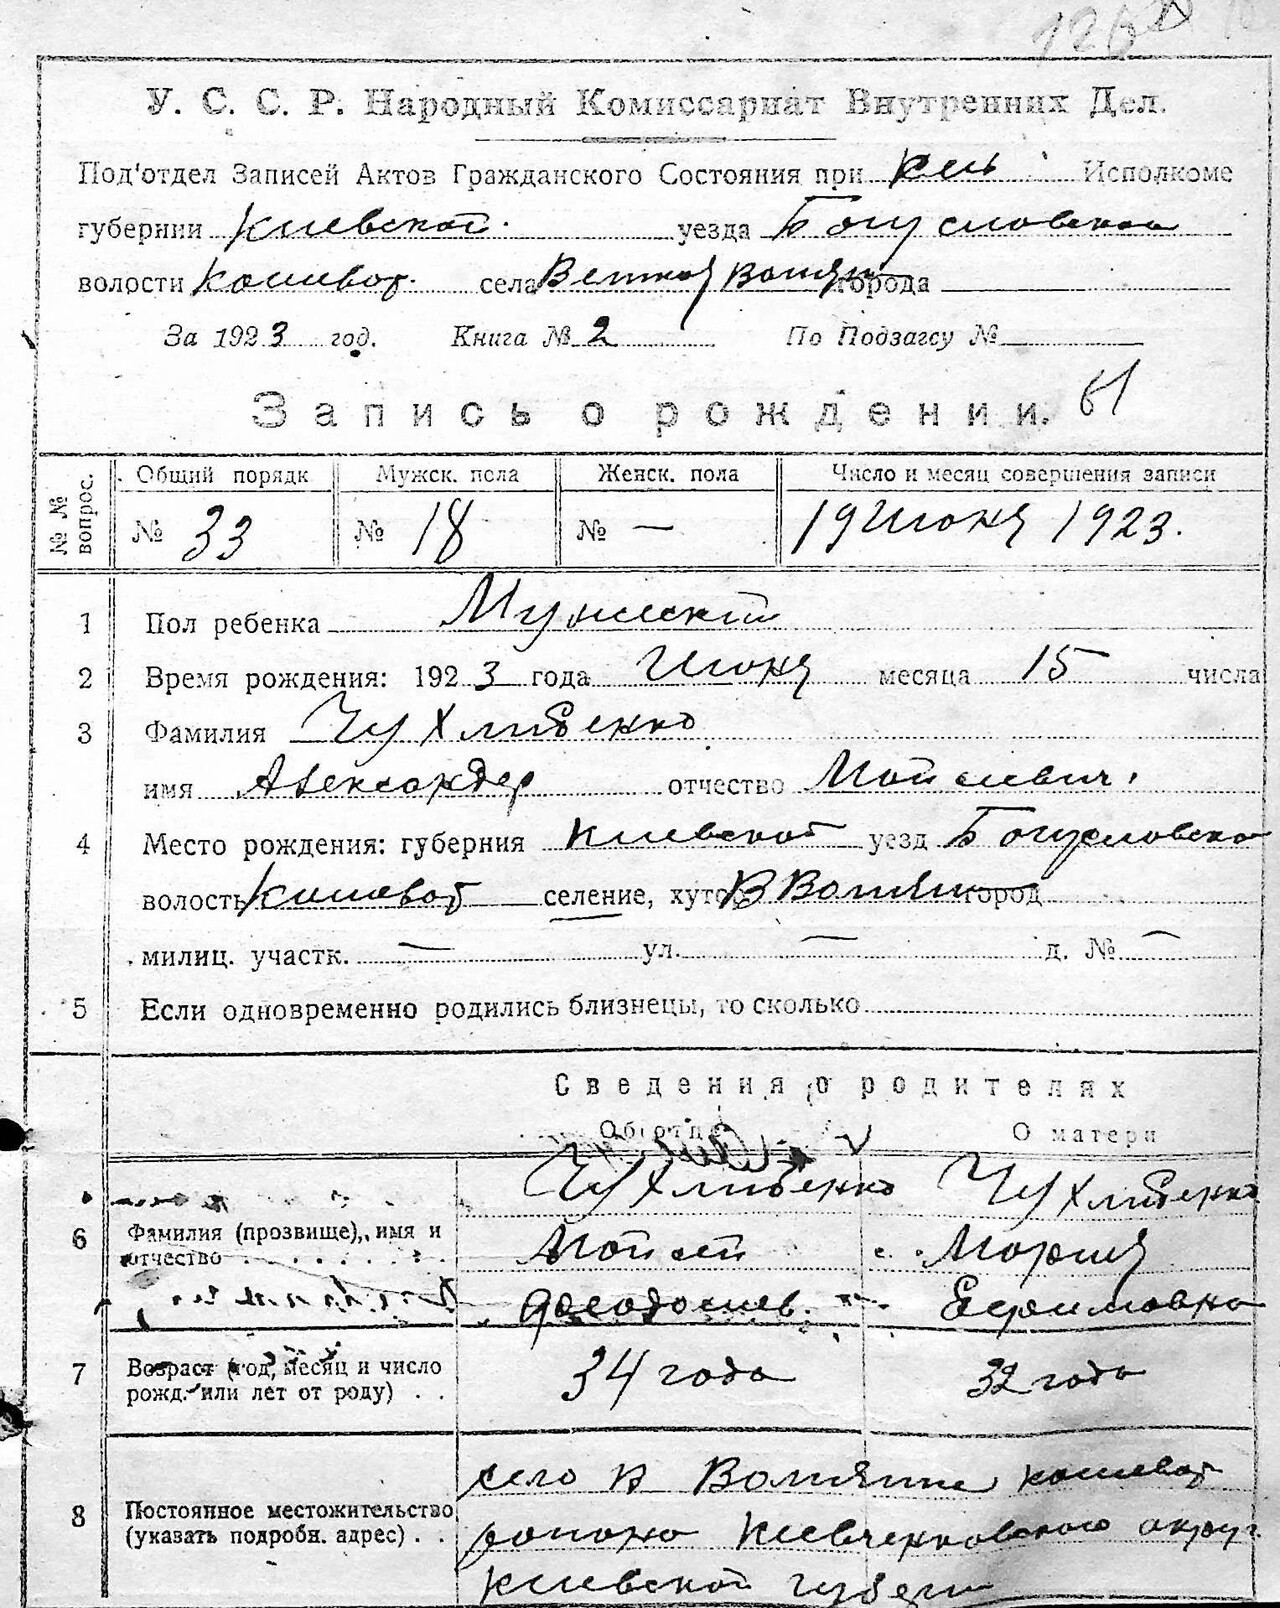 У. С. С. Р. Народный Комиссариат Внутренних Дел.
Под'отдел Записей Актов Гражданского Состояния при Исполкоме
губернии Киевской уезда Богуславской
волости Кошеват. села города
За 1923 год. Книга № 2 По Подзагсу №
Запись о рождении. 61
№№ вопрос. Общий порядк Мужск. пола Женск. пола Число и месяц совершения записи
№ 33 № 18 № — 19 Июня 1923.
1 Пол ребенка Мужеский
2 Время рождения: 1923 года Июня месяца 15 числа
3 Фамилия Чухлибенко
имя Александер отчество Мойсиевич
4 Место рождения: губерния Киевской уезд Богуславско
волость Кошеват селение, хутор город
милиц. участк. — ул. — д. № —
5 Если одновременно родились близнецы, то сколько
Сведения о родителях
Об отце О матери
Чухлибенко Чухлибенко
6 Фамилия (прозвище), имя и отчество Мойсей Мария
Феодосиев. Ефимовна
7 Возраст (год, месяц и число рожд. или лет от роду) 34 года 32 года
село В кошеват
8 Постоянное местожительство (указать подробн. адрес) району Шевченковского округ
Киевской губерн